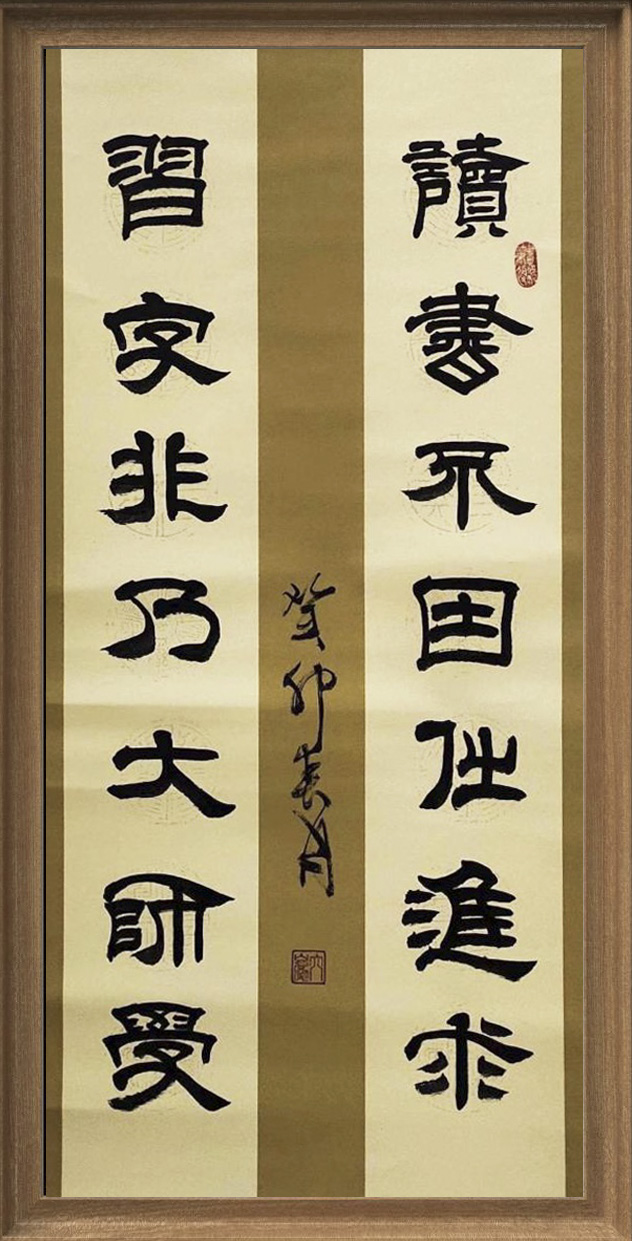 讀書不因仕進求
習字非乃大師受
癸卯春月